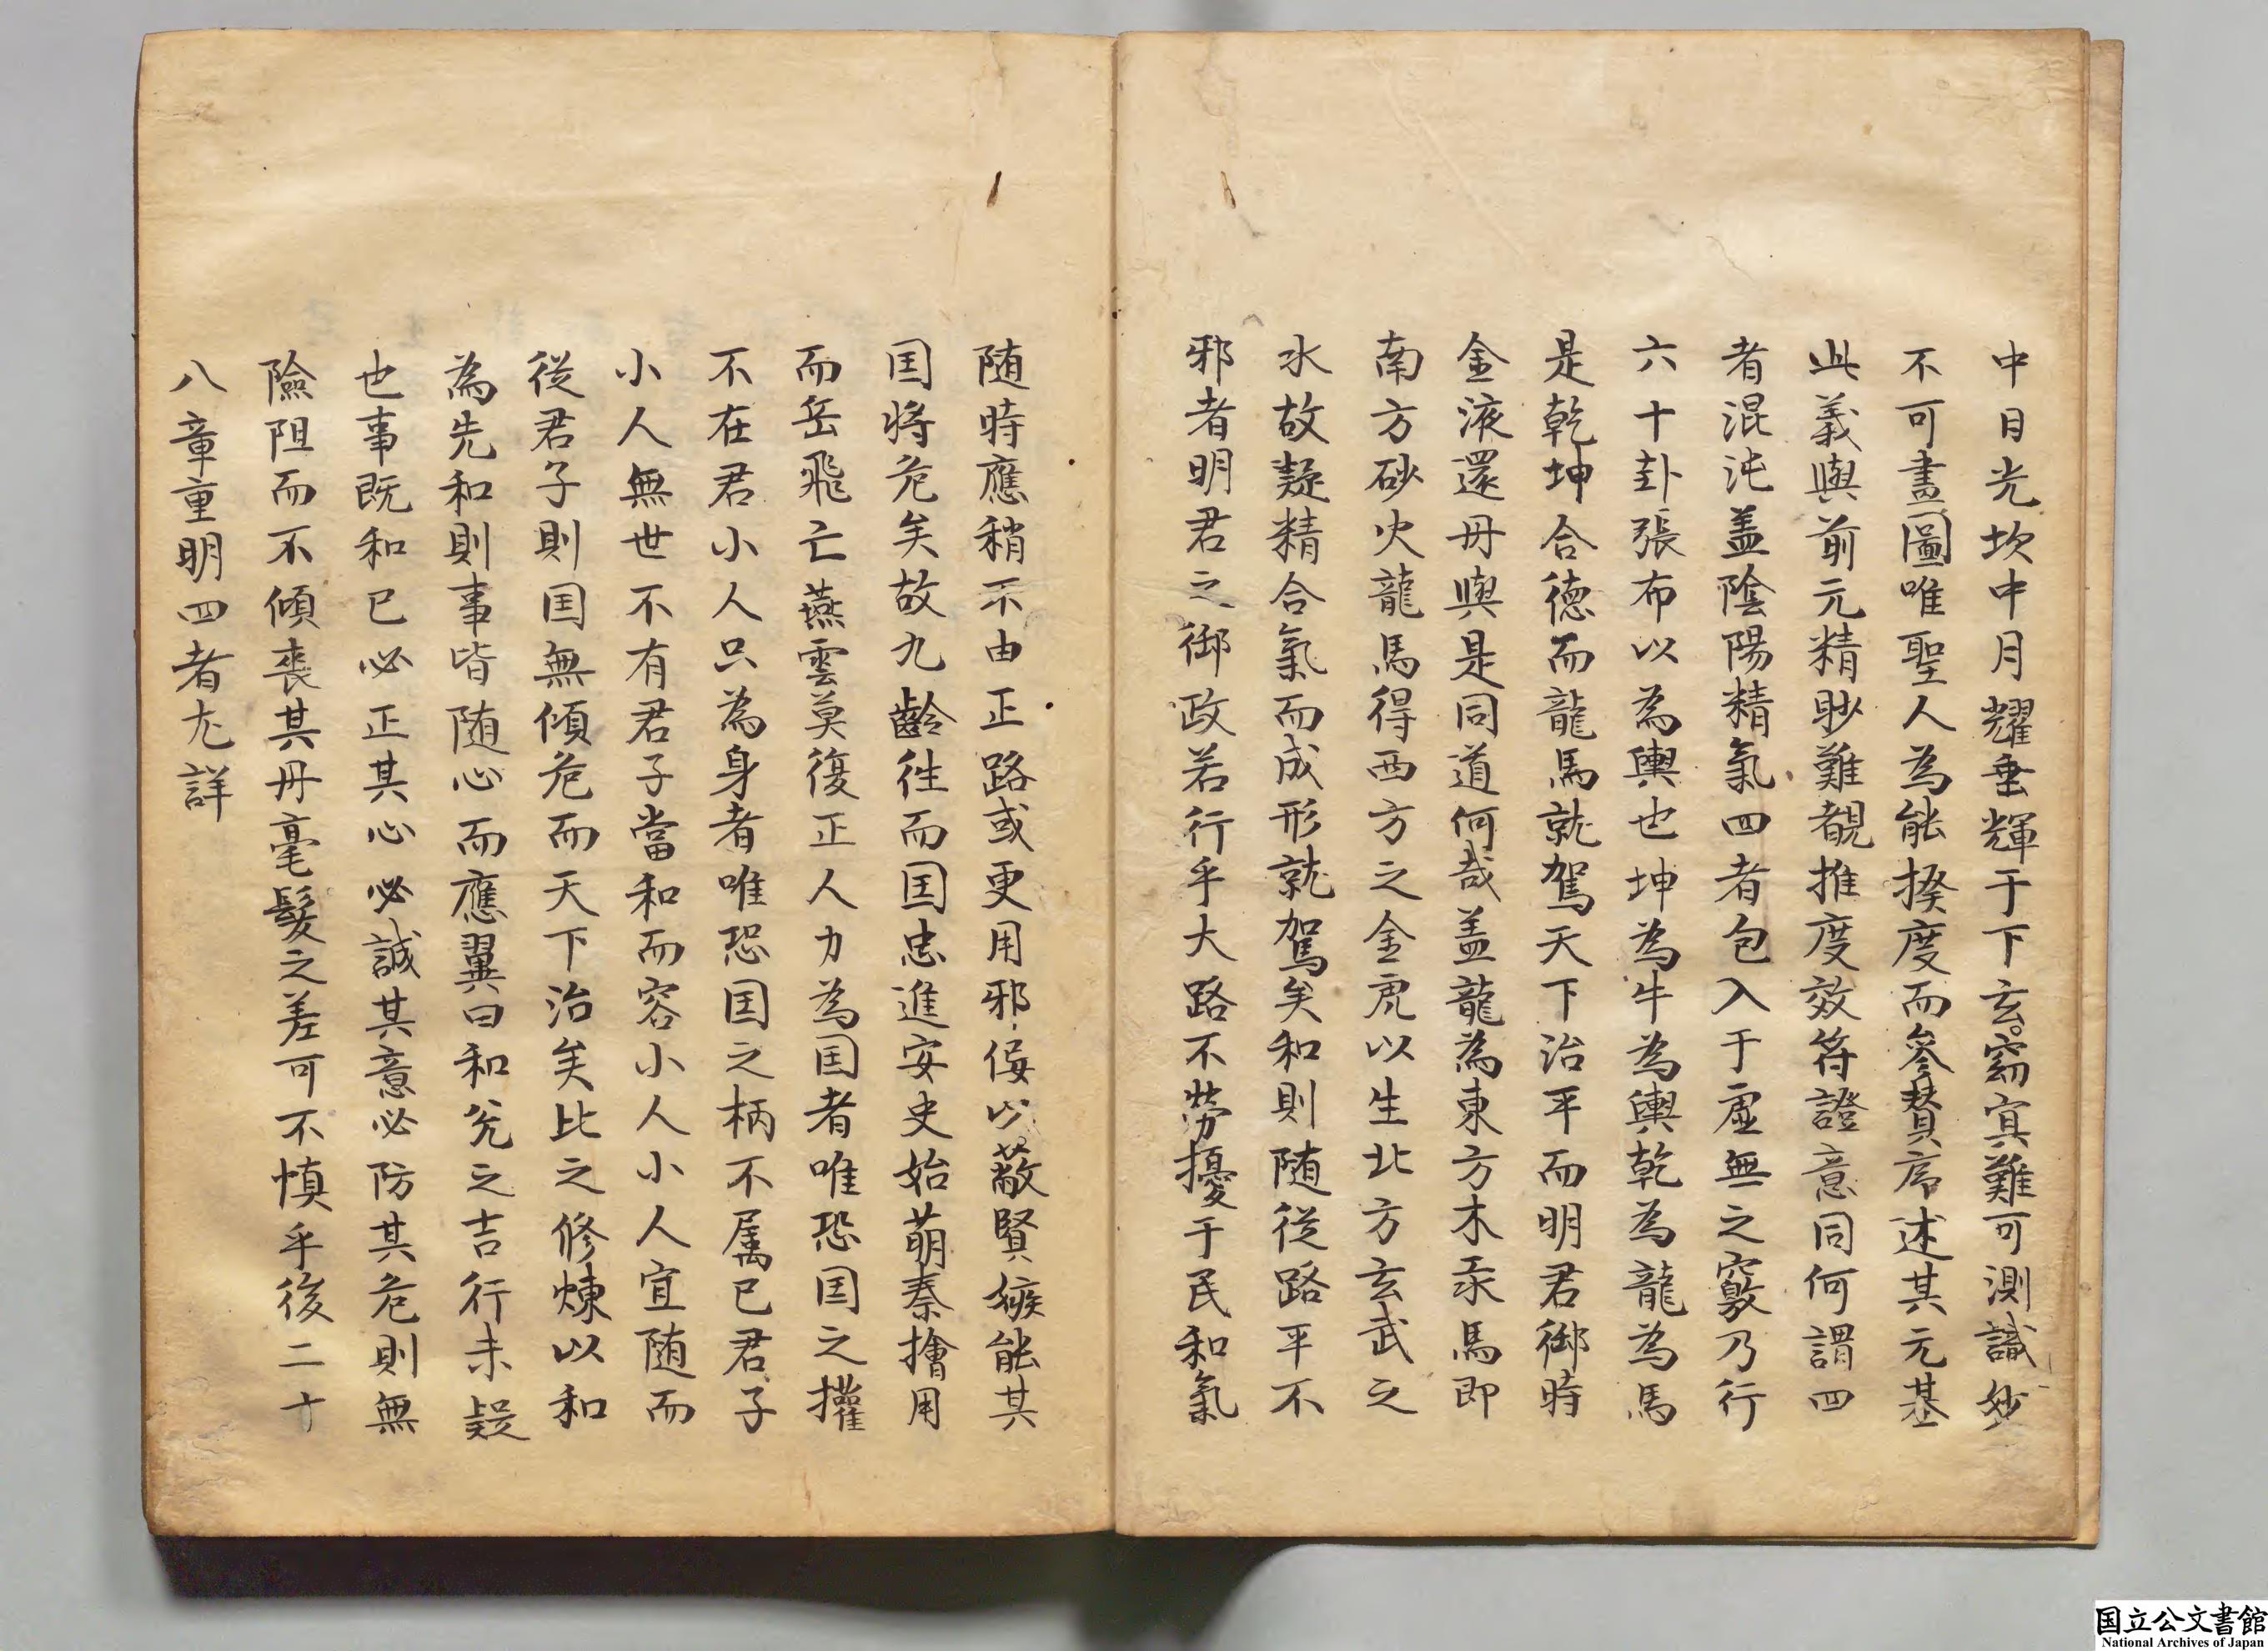 中日光坎中月耀垂輝于下玄窈冥難可測識妙
不可畫圖唯聖人為能揆度而參賛序述其元基
此義與前元精眇難覩推度效符證意同何謂四
者混沌盖陰陽精氣四者包入于虛無之竅乃行
六十卦張布以為輿也坤為牛為輿乾為龍為馬
是乾坤合德而龍馬就駕天下治平而明君御時
金液還丹與是同道何哉盖龍為東方木汞馬即
南方砂火龍馬得西方之金虎以生北方玄武之
水故凝精合氣而成形就駕矣和則随從路平不
邪者明君之御政若行乎大路不勞擾于民和氣
随時應稍不由正路或更用邪佞以蔽賢嫉能其
囯将危矣故九齡徃而囯忠進安史始萌秦檜用
而岳飛亡燕雲莫復正人力為囯者唯恐囯之攉
不在君小人只為身者唯恐囯之柄不属已君子
小人無世不有君子當和而容小人小人宜随而
從君子則囯無傾危而天下治矣比之修煉以和
為先和則事皆随心而應翼曰和兊之吉行未疑
也事既和已必正其心必誠其意必防其危則無
險阻而不傾喪其丹毫髮之差可不慎乎後二十
八章重明四者尢詳
国立公文書館
National Archives of Japan